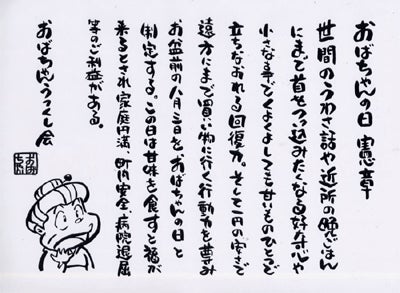 おばちゃんの日 憲章
世間のうわさ話や近所の晩ごはん
にまで首をつっ込みたくなる好奇心や
小さな事でくよくよしても甘いものひとつで
立ちなおれる回復力。そして一円の安さで
遠方にまで買い物に行く行動力を尊び
お盆前の八月三日をおばちゃんの日と
制定する。この日は甘味を食すと福が
来るとされ家庭円満、町内安全、病院退屈
等のご利益がある。
おばちゃんうつくし会